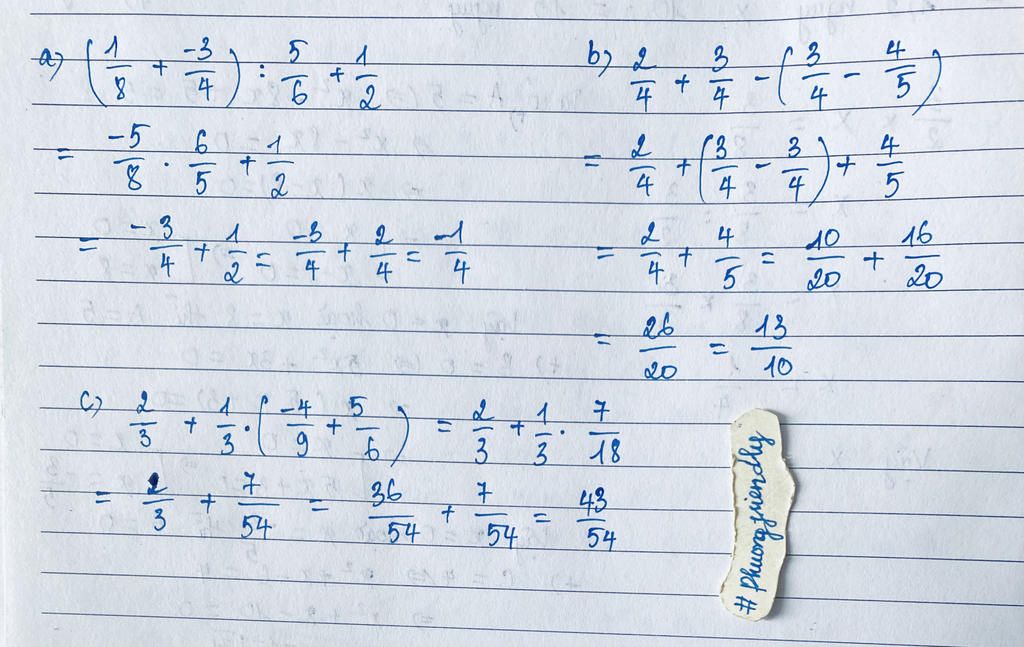 a) (1/8 + -3/4) : 5/6 + 1/2
= -5/8 . 6/5 + 1/2
= -3/4 + 1/2 = -3/4 + 2/4 = -1/4
b) 2/4 + 3/4 - (3/4 - 4/5)
= 2/4 + (3/4 - 3/4) + 4/5
= 2/4 + 4/5 = 10/20 + 16/20
= 26/20 = 13/10
c) 2/3 + 1/3 . (-4/9 + 5/6) = 2/3 + 1/3 . 7/18
= 2/3 + 7/54 = 36/54 + 7/54 = 43/54